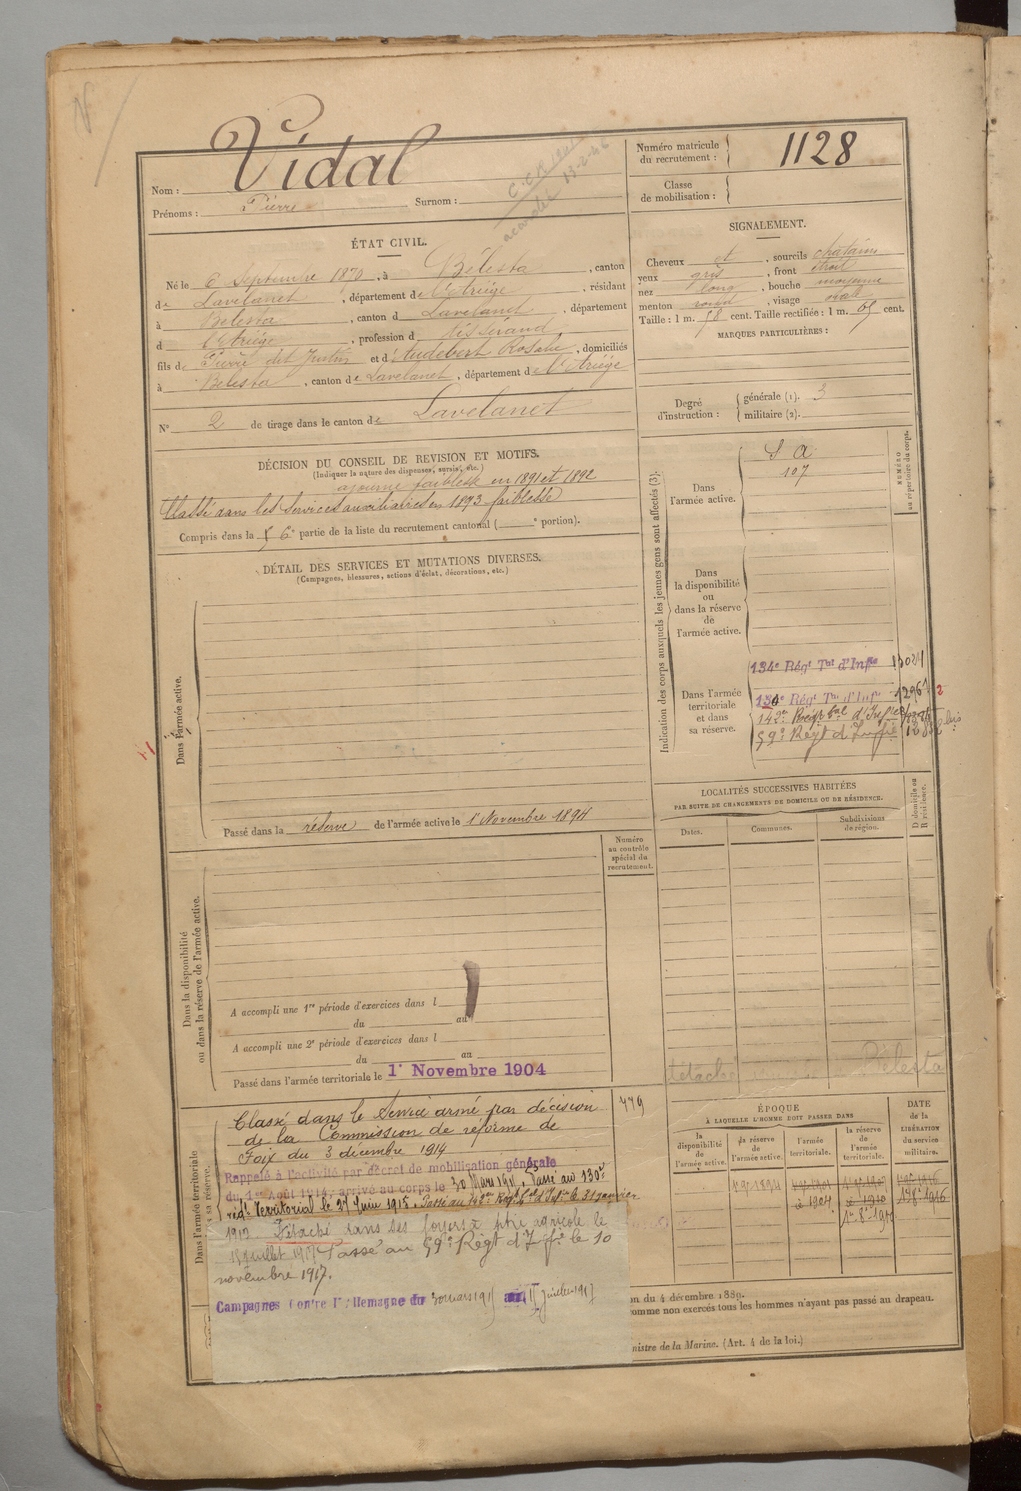 Vidal
Nom :
Prénoms : Pierre Surnom :
Numéro matricule
du recrutement : 1128
Classe
de mobilisation :
ÉTAT CIVIL.
Né le 6 Septembre 1870, à Bélesta, canton
de Lavelanet, département de l'Ariège, résidant
à Bélesta, canton d Lavelanet, département
d l'Ariège, profession d Tisserand,
fils de Pierre dit Justin et d'Audebert Rosalie, domiciliés
à Bélesta, canton de Lavelanet, département de l'Ariège
N° 2 de tirage dans le canton de Lavelanet
SIGNALEMENT.
Cheveux et, sourcils chatains
yeux gris, front étroit
nez long, bouche moyenne
menton rond, visage ovale
Taille : 1 m. 58 cent. Taille rectifiée : 1 m. 65 cent.
MARQUES PARTICULIÈRES :
Degré
d'instruction :
générale (1). 3
militaire (2).
DÉCISION DU CONSEIL DE REVISION ET MOTIFS.
(Indiquer la nature des dispenses, sursis, etc.)
ajourné faiblesse en 1891 et 1892
Classé dans les services auxiliaires en 1893 faiblesse
Compris dans la 6e partie de la liste du recrutement cantonal ( e portion).
DÉTAIL DES SERVICES ET MUTATIONS DIVERSES.
(Campagnes, blessures, actions d'éclat, décorations, etc.)
Dans l'armée active.
Passé dans la réserve de l'armée active le 1er Novembre 1894
Indication des corps auxquels les jeunes gens sont affectés (3).
NUMÉRO
au répertoire du corps.
Dans
l'armée active.
S A
107
Dans
la disponibilité
ou
dans la réserve
de
l'armée active.
Dans l'armée
territoriale
et dans
sa réserve.
134e Régt Tal d'Infie
130e Régt Tal d'Inf
142e
59e Régt d'Infie
LOCALITÉS SUCCESSIVES HABITÉES
PAR SUITE DE CHANGEMENTS DE DOMICILE OU DE RÉSIDENCE.
Dates.
Communes.
Subdivisions
de région.
D domicile ou
R résidence.
détaché Bélesta
Numéro
au contrôle
spécial du
recrutement.
Dans la disponibilité
ou dans la réserve de l'armée active.
A accompli une 1re période d'exercices dans l
du au
A accompli une 2e période d'exercices dans l
du au
Passé dans l'armée territoriale le 1er Novembre 1904
Dans l'armée territoriale
sa réserve.
779
Classé dans le Service armé par décision
de la Commission de réforme de
Foix du 3 décembre 1914
Rappelé à l'activité par décret de mobilisation générale
du 1er Août 1914; arrivé au corps le 30 Mars 191. Passé au 130e
régt Territorial le 27 Juin 1915. Passé au 142e Régt d'Infie le 31 janvier
1917 Détaché dans ses foyers agricole le
juillet 1917 Passé au 59e Régt d'Infie le 10
novembre 1917.
Campagnes Contre l'Allemagne du 30 mars 191 au juillet 1917
ÉPOQUE
À LAQUELLE L'HOMME DOIT PASSER DANS
la
disponibilité
de
l'armée active.
la réserve
de
l'armée active.
l'armée
territoriale.
la réserve
de
l'armée
territoriale.
DATE
de la
LIBÉRATION
du service
militaire.
1er 9bre 1894
1904
1910
on du 4 décembre 1889.
omme non exercés tous les hommes n'ayant pas passé au drapeau.
nistre de la Marine. (Art. 4 de la loi.)